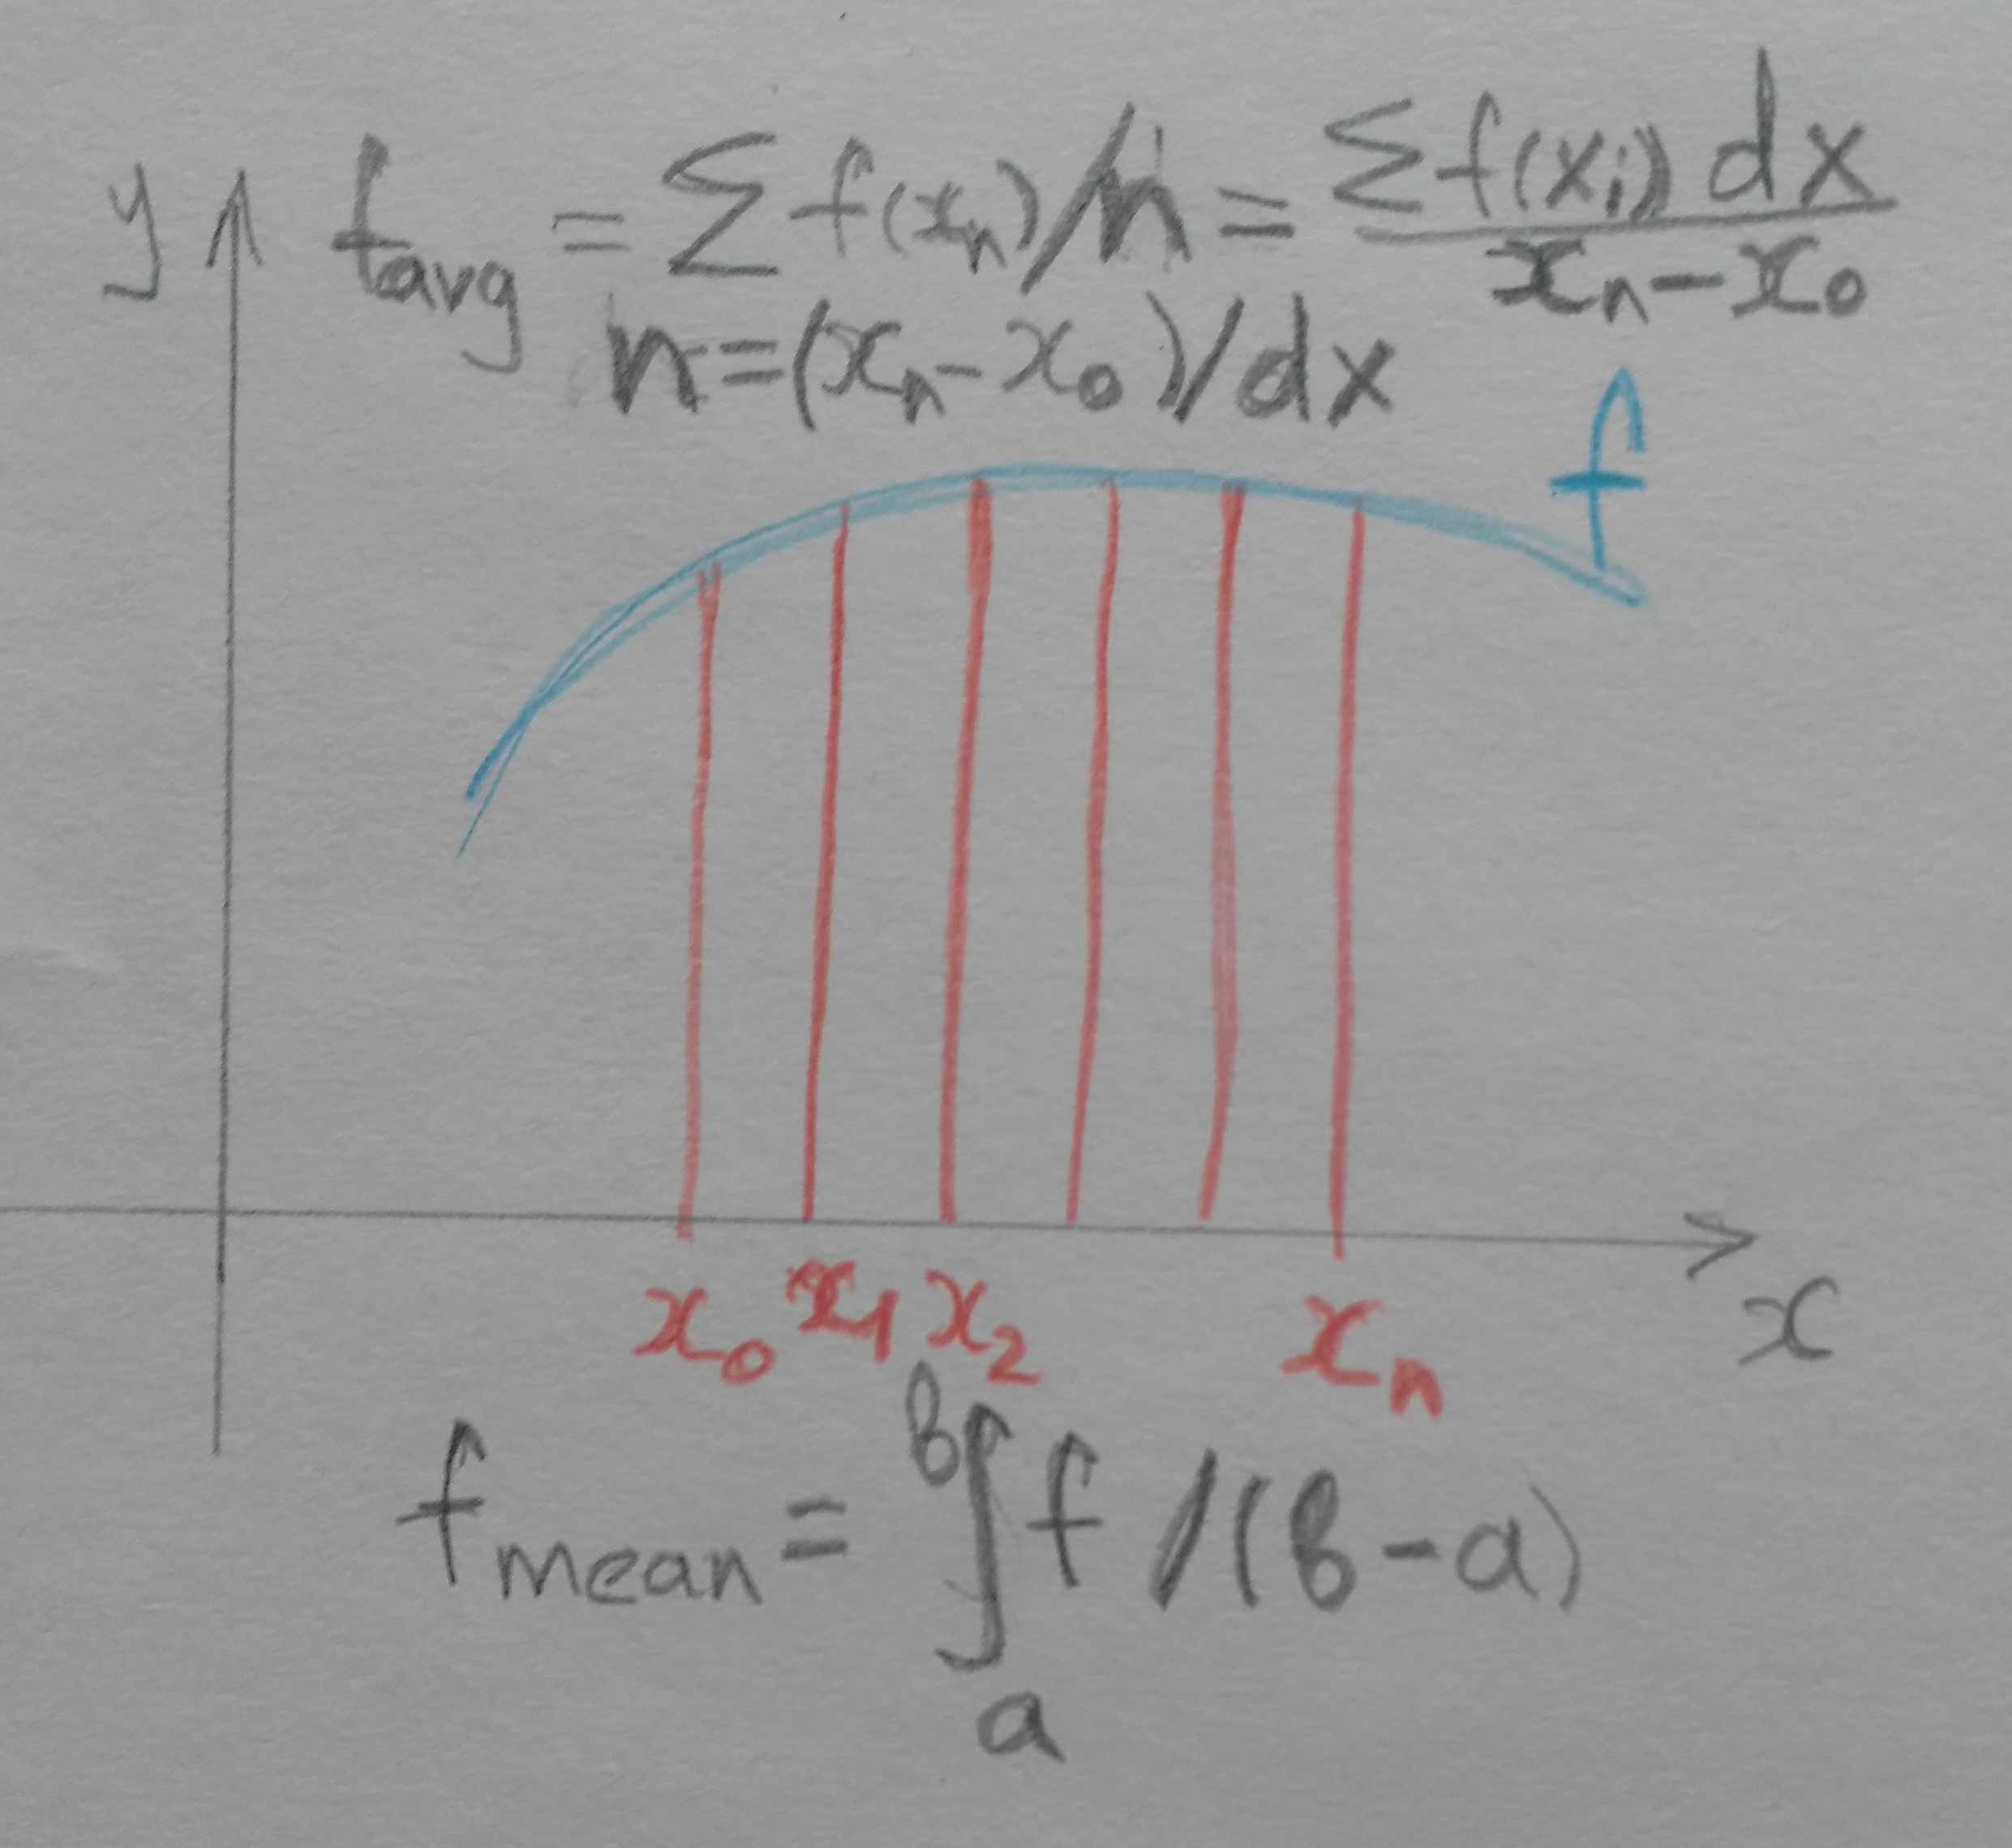 y f_avg = Σ f(x_n)/n = Σ f(x_i) dx / x_n - x_0
n = (x_n - x_0)/dx
f
x_0 x_1 x_2 x_n
x
f_mean = ∫_a^b f /(b - a)